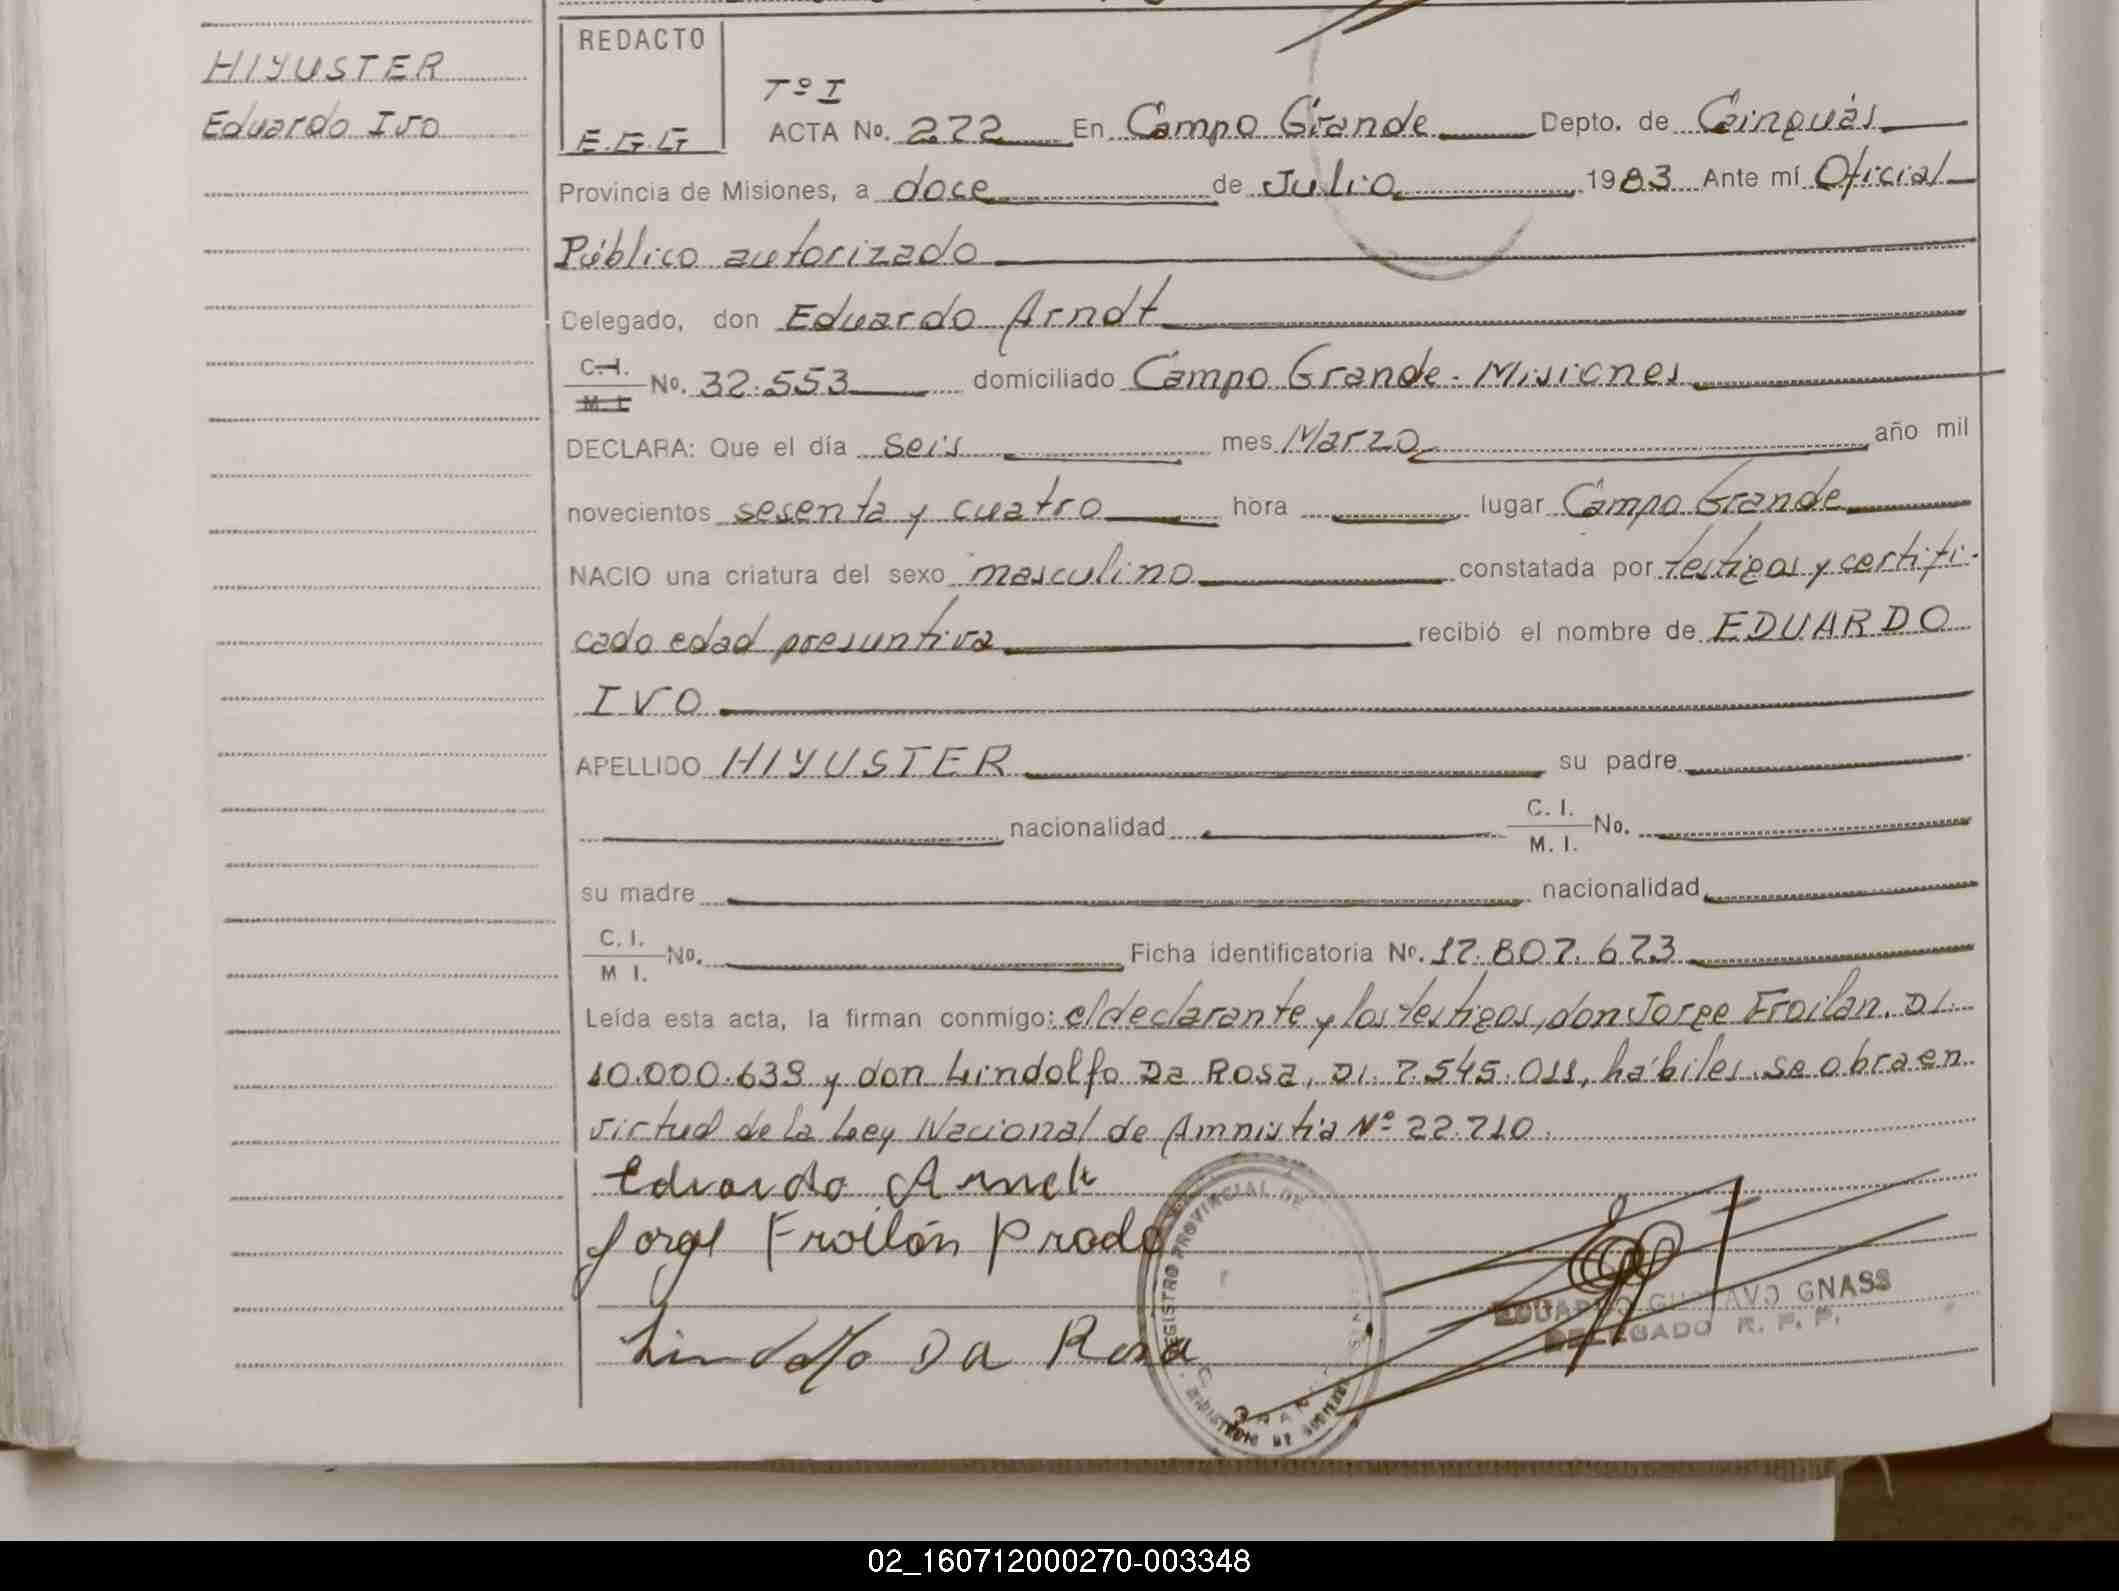 HIYUSTER
Eduardo Ivo
REDACTO
E.G.G
Tº I
ACTA No. 272 En Campo Grande Depto. de Cainguás
Provincia de Misiones, a doce de Julio 1983 Ante mí Oficial
Público autorizado
Delegado, don Eduardo Arndt
C.I. M. I. No. 32.553 domiciliado Campo Grande - Misiones
DECLARA: Que el día seis mes Marzo año mil
novecientos sesenta y cuatro hora lugar Campo Grande
NACIO una criatura del sexo masculino constatada por testigos y certifi-
cado edad presuntiva recibió el nombre de EDUARDO
IVO
APELLIDO HIYUSTER su padre
nacionalidad C. I. M. I. No.
su madre nacionalidad
C. I. M I. No. Ficha identificatoria No. 17.807.673
Leída esta acta, la firman conmigo: el declarante y los testigos, don Jorge Froilan, DI.
10.000.639 y don Lindolfo Da Rosa, DI. 7.545.011, hábiles. se obra en
virtud de la Ley Nacional de Amnistia Nº 22.710.
Eduardo Arndt
Jorge Froilán Prado
Lindolfo Da Rosa
REGISTRO PROVINCIAL DE
EDUARDO GUSTAVO GNASS
DELEGADO R. P. P.
02_160712000270-003348